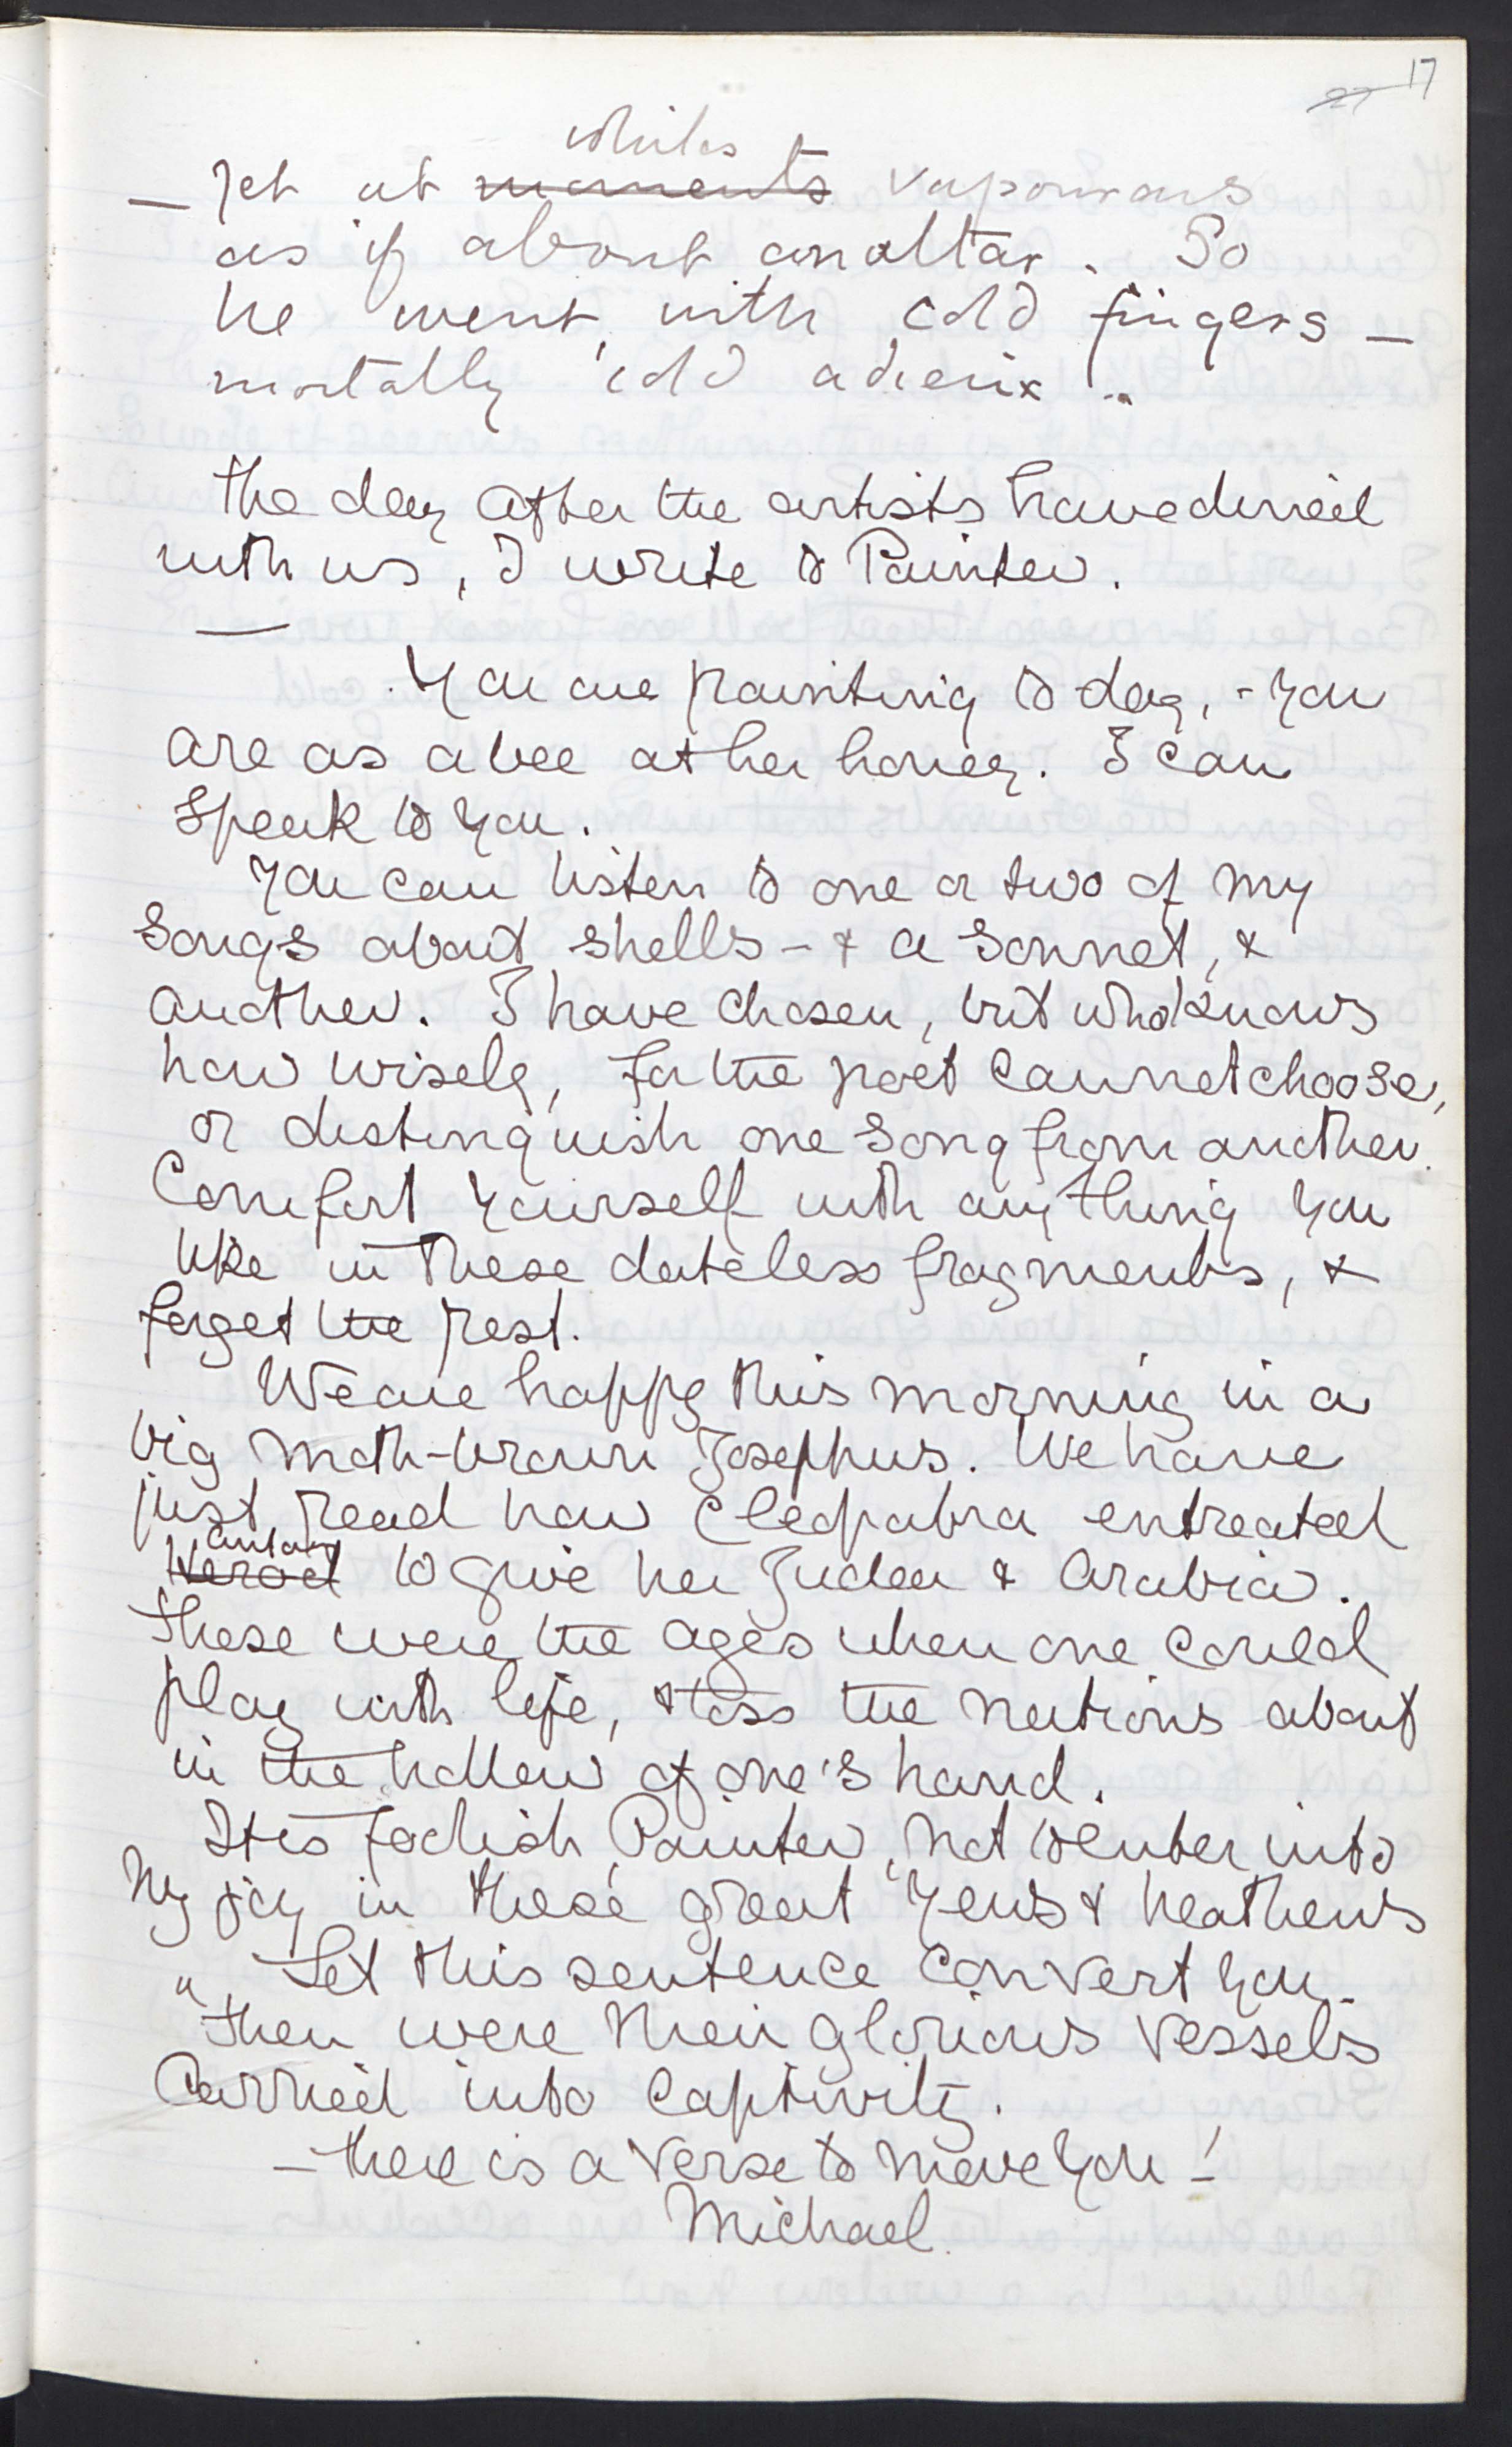 17
27
whiles
— Yet at moments vapourous
as if about an altar. So
he went, with cold fingers —
mortally cold adieux ..
The day after the artists have dined
with us, I write to Painter.
You are painting to day, - you
are as a bee at her honey. I can
speak to you.
You can listen to one or two of my
songs about shells - & a sonnet, &
another. I have chosen, but who knows
how wisely, for the poet cannot choose,
or distinguish one song from another.
Comfort yourself with anything you
like in these dateless fragments, &
forget the rest.
We are happy this morning in a
big moth-brown Josephus. We have
just read how Cleopatra entreated
Antony
Herod to give her Judea & Arabia.
Those were the ages when one could
play with life, & toss the nations about
in the hollow of one's hand.
It is foolish, Painter, not to enter into
my joy in these great Jews & heathens
Let this sentence convert you -
"Then were their glorious vessels
Carried into captivity.
— there is a verse to move you - !
Michael.